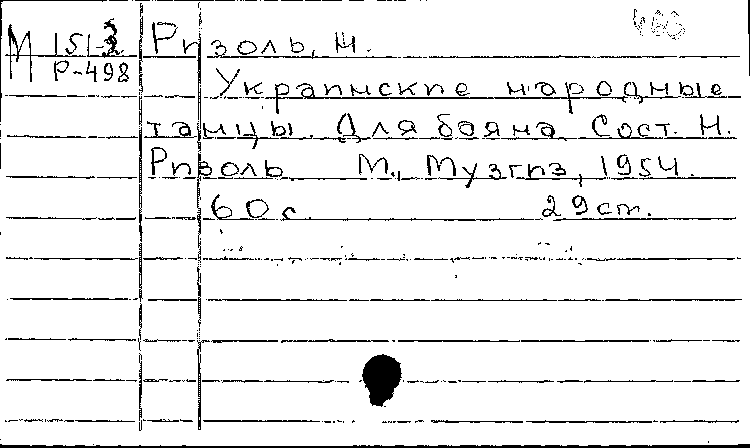 М 151-3 Ризоль, Н.
Р-498
Украинские народные
танцы. Для баяна Сост. Н.
Ризоль М., Музгиз, 1954.
60 с. 29 cm.